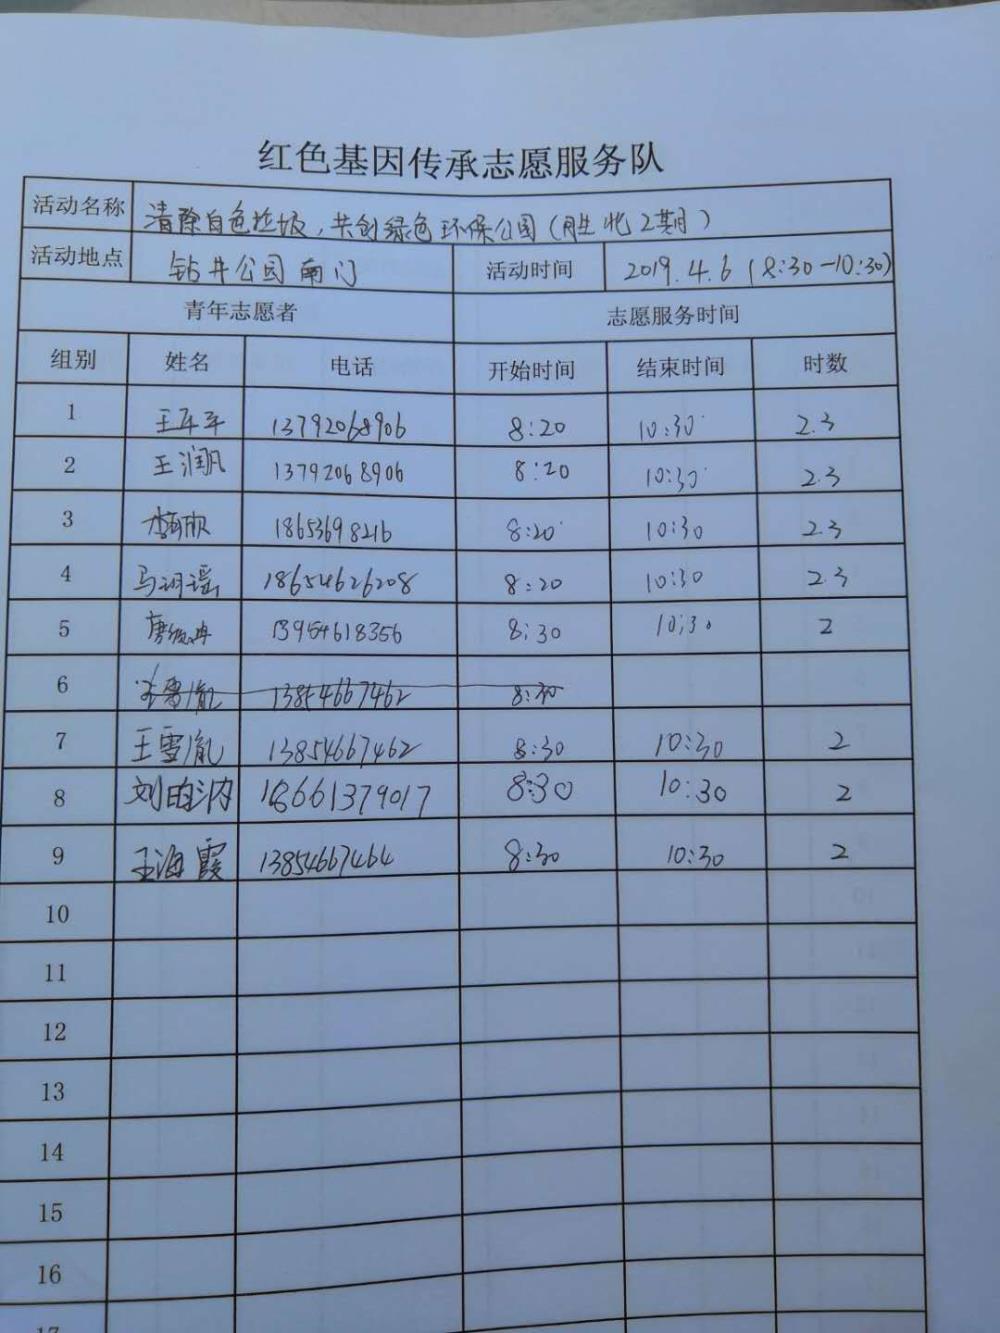 红色基因传承志愿服务队
活动名称 清除白色垃圾，共创绿色环保公园（胜北2期）
活动地点 钻井公园南门 活动时间 2019.4.6（8:30—10:30）
青年志愿者 志愿服务时间
组别 姓名 电话 开始时间 结束时间 时数
1 王军平 13792068906 8:20 10:30 2.3
2 王润凡 13792068906 8:20 10:30 2.3
3 18653698216 8:20 10:30 2.3
4 马玥瑶 18654626208 8:20 10:30 2.3
5 13954618356 8:30 10:30 2
6 王雪胤 13854667462 8:30
7 王雪胤 13854667462 8:30 10:30 2
8 刘 18661379017 8:30 10:30 2
9 王海霞 13854667464 8:30 10:30 2
10
11
12
13
14
15
16
17